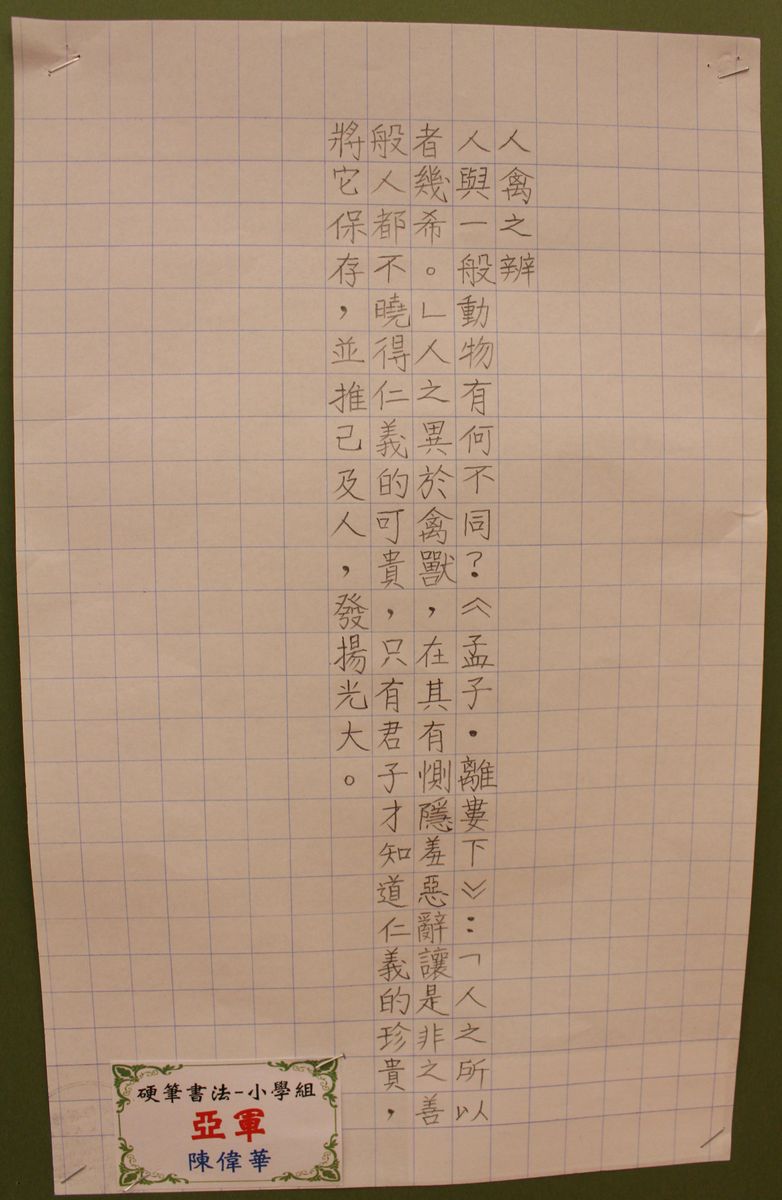 人禽之辨
人與一般動物有何不同？《孟子·離婁下》：「人之所以
者幾希。」人之異於禽獸，在其有惻隱羞惡辭讓是非之善
般人都不曉得仁義的可貴，只有君子才知道仁義的珍貴，
將它保存，並推己及人，發揚光大。
硬筆書法-小學組
亞軍
陳偉華